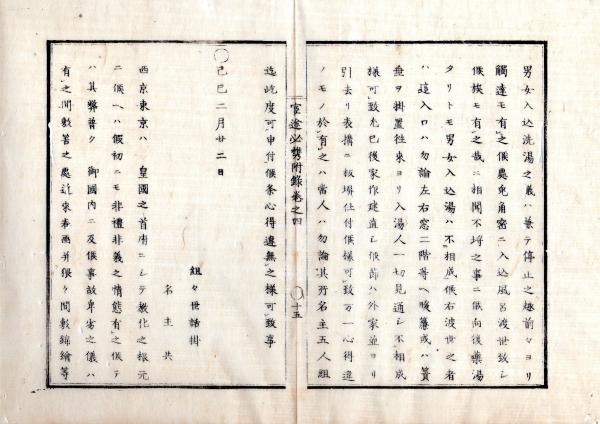 男女入込洗湯之義ハ兼テ停止之趣前々ヨリ
觸達モ有之候處兎角密ニ入込風呂渡世致シ
候族モ有之哉ニ相聞不埒之事ニ候向後藥湯
タリトモ男女入込湯ハ不相成候右渡世之者
ハ這入口ハ勿論左右窓二階等ヘ暖簾或ハ簀
垂ヲ掛置往來ヨリ入湯人一切見通シ不相成
樣可致尤已後家作建直シ候節ハ外家並ヨリ
引去リ表構ニ板塀仕付候樣可致万一心得違
ノモノ於有之ハ當人ハ勿論其所名主五人組
官途必携附錄卷之四
〇十五
迄屹度可申付候条心得違無之樣可致事
組々世話掛
名主共
〇己巳二月廿二日
西京東京ハ 皇國之首府ニシテ教化之根元
ニ候ヘハ假初ニモ非禮非義之情態有之候テ
ハ其弊普ク 御國内ニ及候事故卑劣之儀ハ
有之間敷筈之處近來春画并猥ヶ間敷錦繪等